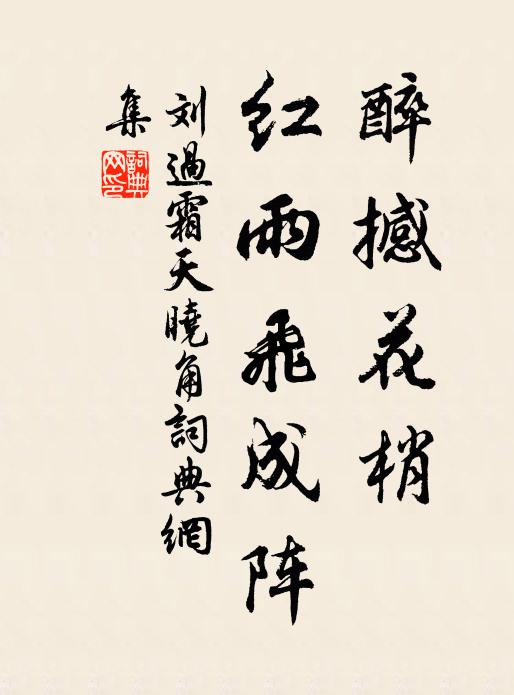 醉撼花梢
红雨飛成阵
刘過霜天曉角詞典網
集
詞典网印